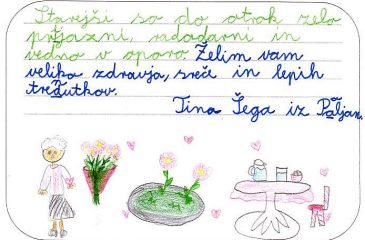 Starejši so do otrok zelo
prijazni, radodarni in
vedno v oporo. Želim vam
veliko zdravja, sreče in lepih
trenutkov.
Tina Šega iz Poljan.